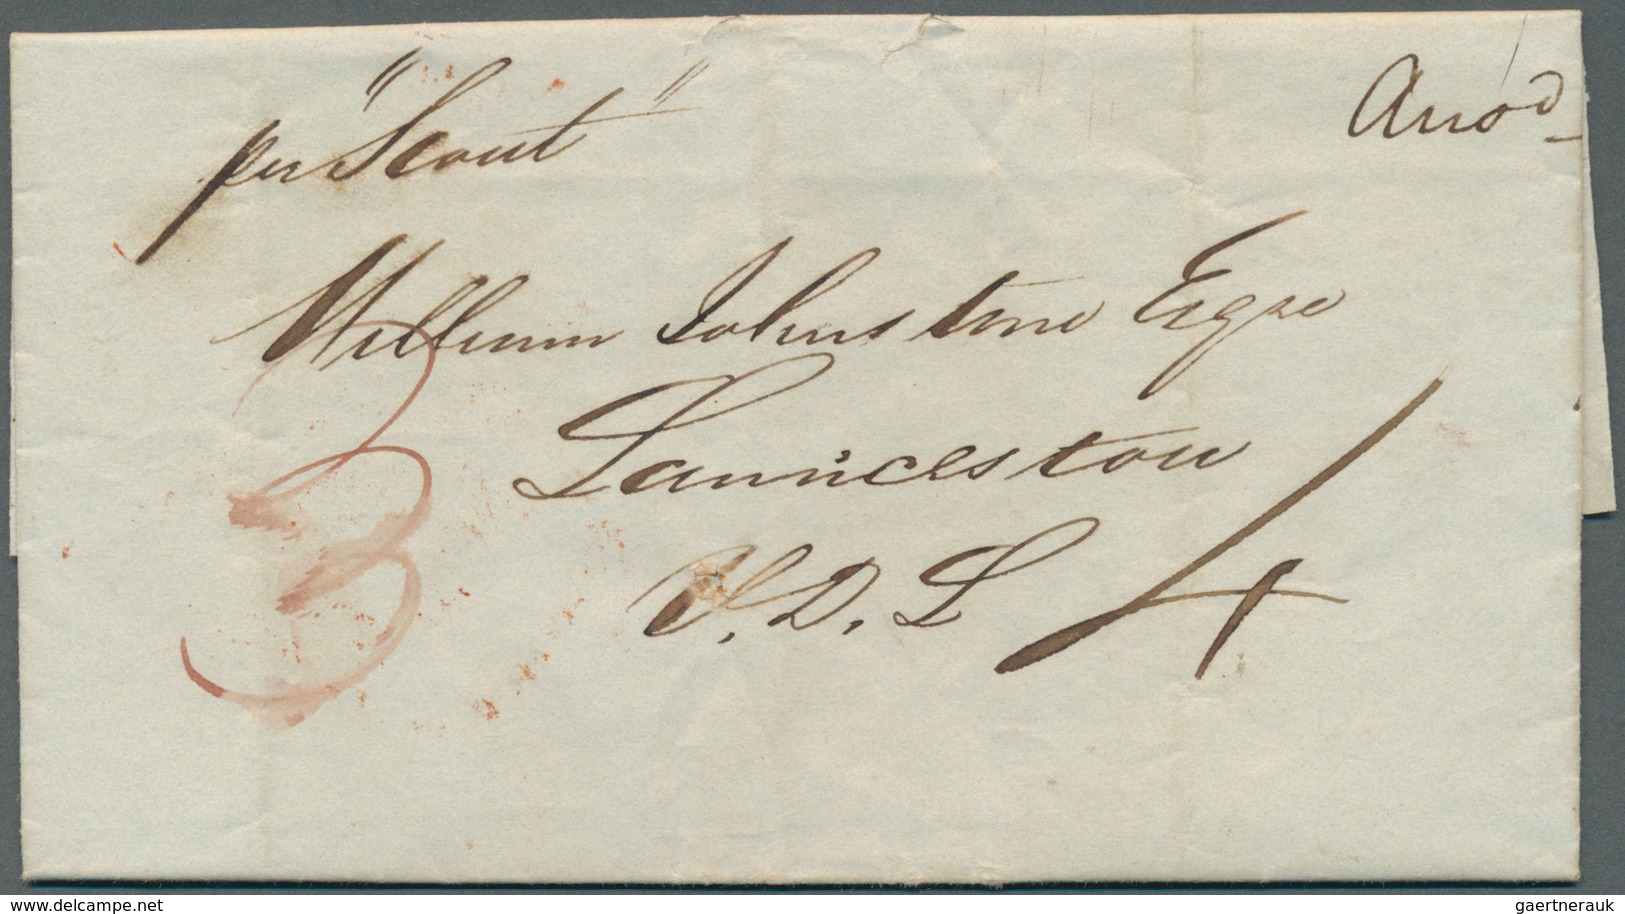 per "Scout"
Ansd
William Johnstone Esqre
Launceston
V. D. L
3
4
www.delcampe.net
gaertnerauk